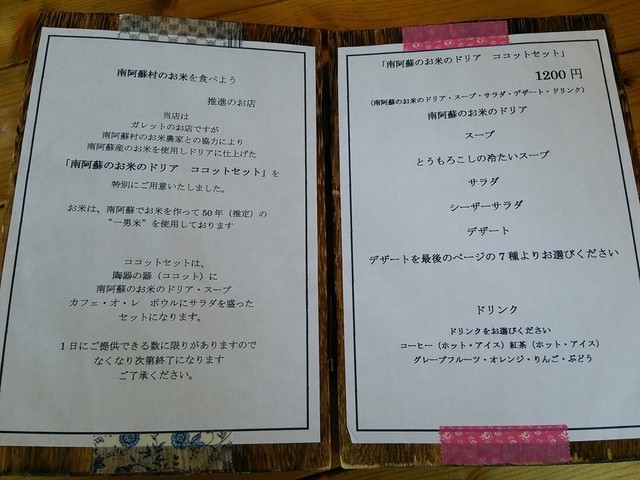 南阿蘇村のお米を食べよう
推進のお店
当店は
ガレットのお店ですが
南阿蘇村のお米農家との協力により
南阿蘇産のお米を使用しドリアに仕上げた
「南阿蘇のお米のドリア ココットセット」を
特別にご用意いたしました。
お米は、南阿蘇でお米を作って50年（推定）の
“一男米”を使用しております
ココットセットは、
陶器の器（ココット）に
南阿蘇のお米のドリア・スープ
カフェ・オ・レ ボウルにサラダを盛った
セットになります。
1日にご提供できる数に限りがありますので
なくなり次第終了になります
ご了承ください。
「南阿蘇のお米のドリア ココットセット」
1200円
（南阿蘇のお米のドリア・スープ・サラダ・デザート・ドリンク）
南阿蘇のお米のドリア
スープ
とうもろこしの冷たいスープ
サラダ
シーザーサラダ
デザート
デザートを最後のページの7種よりお選びください
ドリンク
ドリンクをお選びください
コーヒー（ホット・アイス）紅茶（ホット・アイス）
グレープフルーツ・オレンジ・りんご・ぶどう